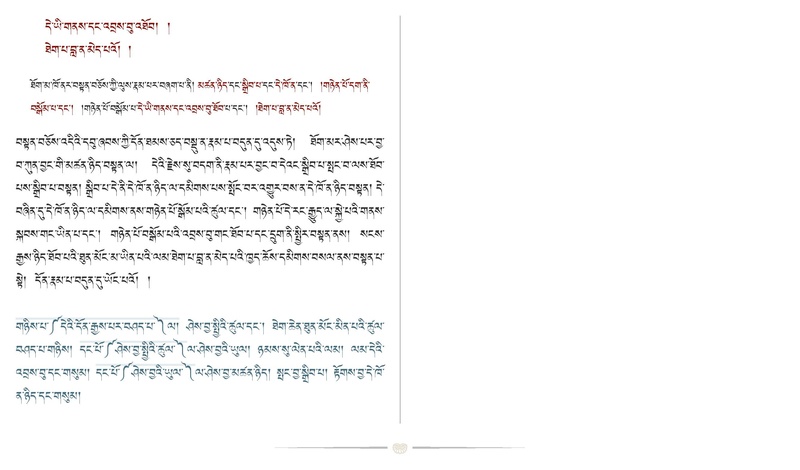 དེ་ཡི་གནས་དང་འབྲས་བུ་འཐོབ། །
ཐེག་པ་བླ་ན་མེད་པའོ། །
ཐོག་མ་ཁོ་ནར་བསྟན་བཅོས་ཀྱི་ལུས་རྣམ་པར་བཞག་པ་ནི། མཚན་ཉིད་དང་སྒྲིབ་པ་དང་དེ་ཁོ་ན་དང་། །གཉེན་པོ་དག་ནི་
བསྒོམ་པ་དང་། །གཉེན་པོ་བསྒོམ་པ་དེ་ཡི་གནས་དང་འབྲས་བུ་ཐོབ་པ་དང་། །ཐེག་པ་བླ་ན་མེད་པའོ།
བསྟན་བཅོས་འདིའི་དབུ་ཞབས་ཀྱི་དོན་ཐམས་ཅད་བསྡུ་ན་རྣམ་པ་བདུན་དུ་འདུས་ཏེ། ཐོག་མར་ཤེས་པར་བྱ་
བ་ཀུན་བྱང་གི་མཚན་ཉིད་བསྟན་ལ། དེའི་རྗེས་སུ་བདག་ནི་རྣམ་པར་བྱང་བ་དེའང་སྒྲིབ་པ་སྤང་བ་ལས་ཐོབ་
པས་སྒྲིབ་པ་བསྟན། སྒྲིབ་པ་དེ་ནི་དེ་ཁོ་ན་ཉིད་ལ་དམིགས་པས་སྤོང་བར་འགྱུར་བས་ན་དེ་ཁོ་ན་ཉིད་བསྟན། དེ་
བཞིན་དུ་དེ་ཁོ་ན་ཉིད་ལ་དམིགས་ནས་གཉེན་པོ་སྒོམ་པའི་ཚུལ་དང་། གཉེན་པོ་དེ་རང་རྒྱུད་ལ་སྐྱེ་པའི་གནས་
སྐབས་གང་ཡིན་པ་དང་། གཉེན་པོ་བསྒོམ་པའི་འབྲས་བུ་གང་ཐོབ་པ་དང་དྲུག་ནི་སྤྱིར་བསྟན་ནས། སངས་
རྒྱས་ཉིད་ཐོབ་པའི་ཐུན་མོང་མ་ཡིན་པའི་ལམ་ཐེག་པ་བླ་ན་མེད་པའི་ཁྱད་ཆོས་དམིགས་བསལ་ནས་བསྟན་པ་
སྟེ། དོན་རྣམ་པ་བདུན་དུ་ཡོང་པའོ། །
གཉིས་པ་༼དེའི་དོན་རྒྱས་པར་བཤད་པ་༽ལ། ཤེས་བྱ་སྤྱིའི་ཚུལ་དང་། ཐེག་ཆེན་ཐུན་མོང་མིན་པའི་ཚུལ་
བཤད་པ་གཉིས། དང་པོ་༼ཤེས་བྱ་སྤྱིའི་ཚུལ་༽ལ་ཤེས་བྱའི་ཡུལ། ཉམས་སུ་ལེན་པའི་ལམ། ལམ་དེའི་
འབྲས་བུ་དང་གསུམ། དང་པོ་༼ཤེས་བྱའི་ཡུལ་༽ལ་ཤེས་བྱ་མཚན་ཉིད། སྤང་བྱ་སྒྲིབ་པ། རྟོགས་བྱ་དེ་ཁོ་
ན་ཉིད་དང་གསུམ།